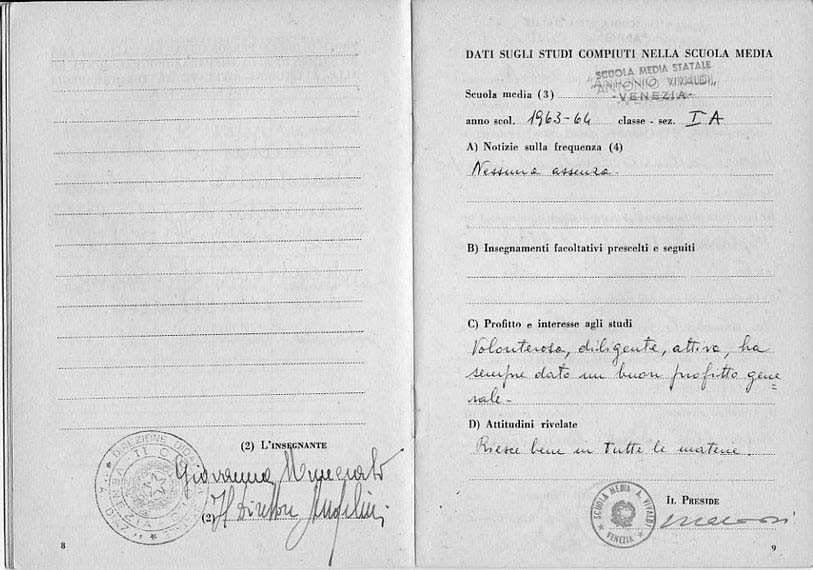 (2) L'INSEGNANTE
Giovanna
(2) Il Direttore
8
DATI SUGLI STUDI COMPIUTI NELLA SCUOLA MEDIA
SCUOLA MEDIA STATALE
"ANTONIO VIVALDI"
-VENEZIA-
Scuola media (3)
anno scol. 1963-64 classe - sez. I A
A) Notizie sulla frequenza (4)
Nessuna assenza.
B) Insegnamenti facoltativi prescelti e seguiti
C) Profitto e interesse agli studi
Volonterosa, diligente, attiva, ha
sempre dato un buon profitto gene
rale-
D) Attitudini rivelate
Riesce bene in tutte le materie.
IL PRESIDE
SCUOLA MEDIA A. VIVALDI
VENEZIA
9